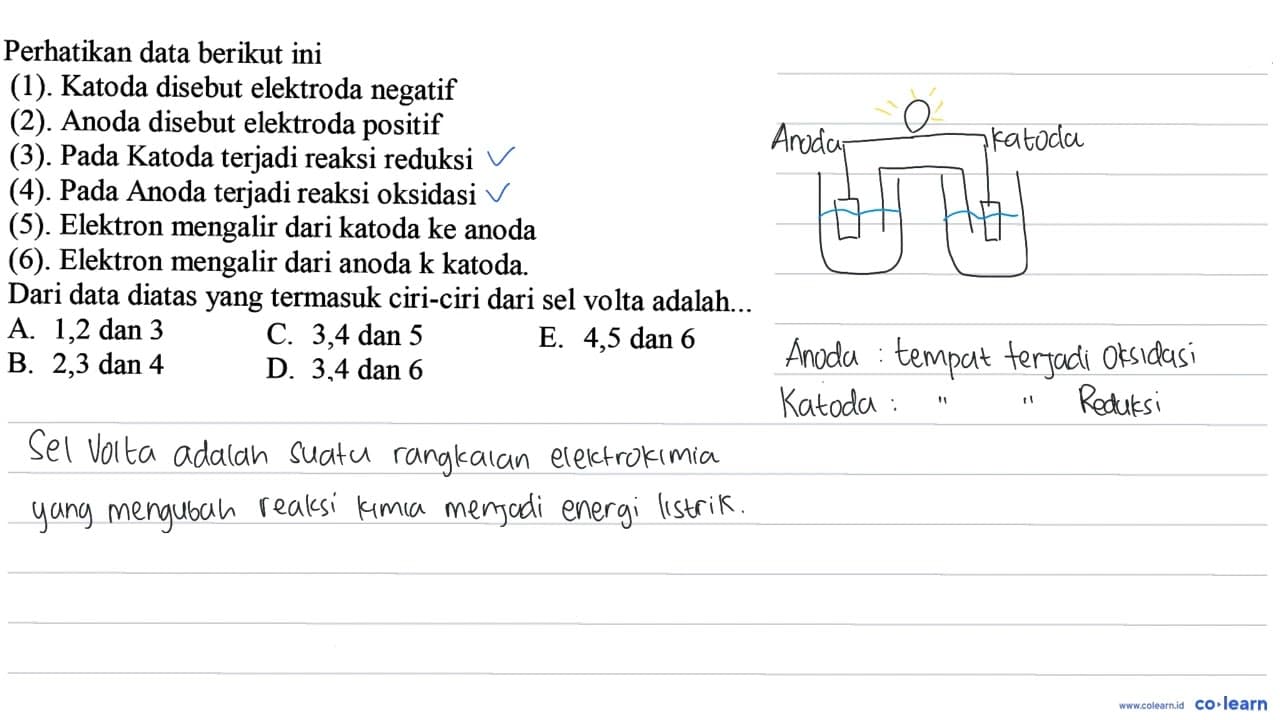 Perhatikan data berikut ini
(1). Katoda disebut elektroda negatif
(2). Anoda disebut elektroda positif
(3). Pada Katoda terjadi reaksi reduksi ✓
(4). Pada Anoda terjadi reaksi oksidasi ✓
(5). Elektron mengalir dari katoda ke anoda
(6). Elektron mengalir dari anoda k katoda.
Dari data diatas yang termasuk ciri-ciri dari sel volta adalah...
A. 1,2 dan 3 C. 3,4 dan 5 E. 4,5 dan 6
B. 2,3 dan 4 D. 3,4 dan 6
Anoda katoda
Anoda : tempat terjadi Oksidasi
Katoda : " " Reduksi
Sel Volta adalah suatu rangkaian elektrokimia
yang mengubah reaksi kimia menjadi energi listrik.
www.colearn.id co·learn